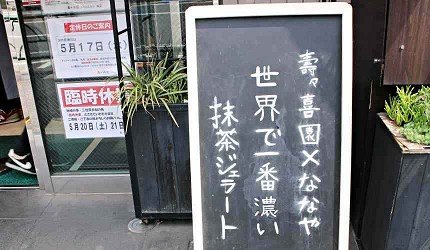 壽々喜園×ななや
世界で一番濃い
抹茶ジェラート
定休日のご案内
5月17日(
臨時休
5月20日(土)21日